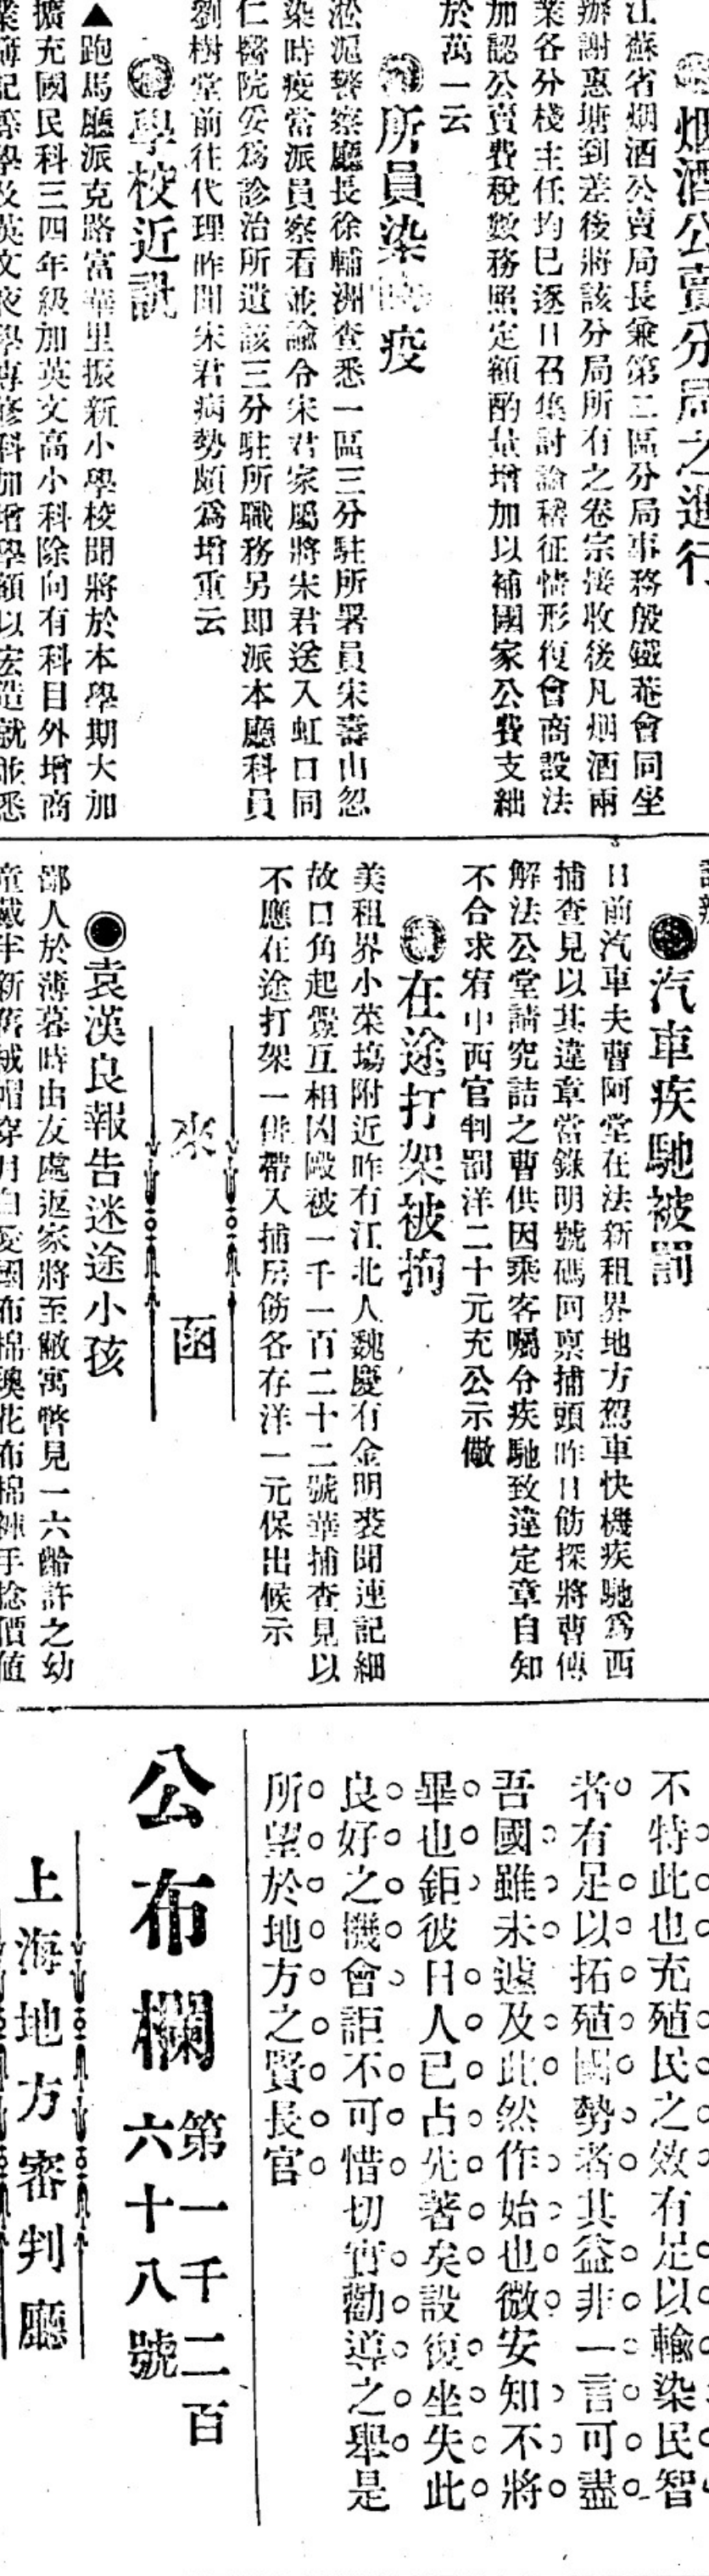 烟酒公賣分局之進行
江蘇省烟酒公賣局長兼第二區分局事務殷鐵菴會同坐
辦謝惠塘到差後將該分局所有之卷宗接收後凡烟酒兩
業各分棧主任均已逐日召集討論稽征情形復會商設法
加認公賣費稅數務照定額酌量增加以補國家公費支絀
於萬一云
所員染時疫
淞滬警察廳長徐輔洲查悉一區三分駐所署員宋壽山忽
染時疫當派員察看並諭令宋君家屬將宋君送入虹口同
仁醫院妥爲診治所遺該三分駐所職務另即派本廳科員
劉樹堂前往代理昨聞宋君病勢頗爲增重云
學校近訊
▲跑馬廳派克路富華里振新小學校聞將於本學期大加
擴充國民科三四年級加英文高小科除向有科目外增商
業簿記等學及英文夜學專修科加增學額以宏造就並悉
汽車疾馳被罰
日前汽車夫曹阿堂在法新租界地方駕車快機疾馳爲西
捕查見以其違章當錄明號碼回禀捕頭昨日飭探將曹傳
解法公堂請究詰之曹供因乘客囑令疾馳致違定章自知
不合求宥中西官判罰洋二十元充公示儆
在途打架被拘
美租界小菜塲附近昨有江北人魏慶有金明裘聞連記細
故口角起釁互相凶毆被一千一百二十二號華捕查見以
不應在途打架一併帶入捕房飭各存洋一元保出候示
來函
●袁漢良報告迷途小孩
鄙人於薄暮時由友處返家將至敝寓瞥見一六齡許之幼
童戴半新舊絨帽穿月白愛國布棉襖花布棉褲手捻價值
不特此也充殖民之效有足以輸染民智
者有足以拓殖國勢者其益非一言可盡
吾國雖未遽及此然作始也微安知不將
畢也鉅彼日人已占先著矣設復坐失此
良好之機會詎不可惜切實勸導之舉是
所望於地方之賢長官
公布欄 第一千二百六十八號
上海地方審判廳